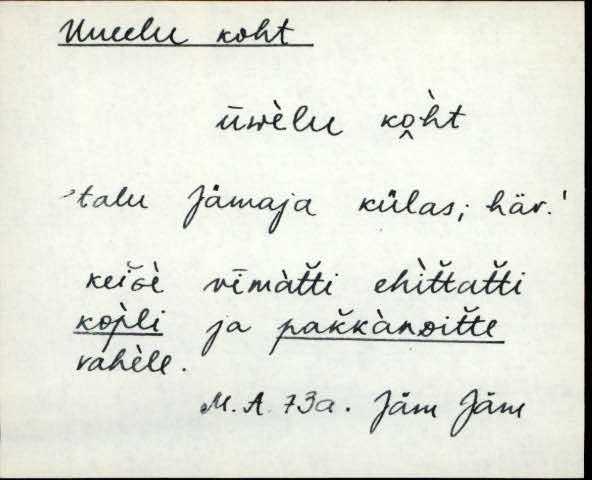 Uueelu koht
ūwèlu ko̭ht
'talu Jämaja külas; häv.'
vīmàt̆ti ehìt̆tat̆ti
kòpli ja pak̆kànɒit̆te
vahèle.
M. A. 73a. Jäm Jäm